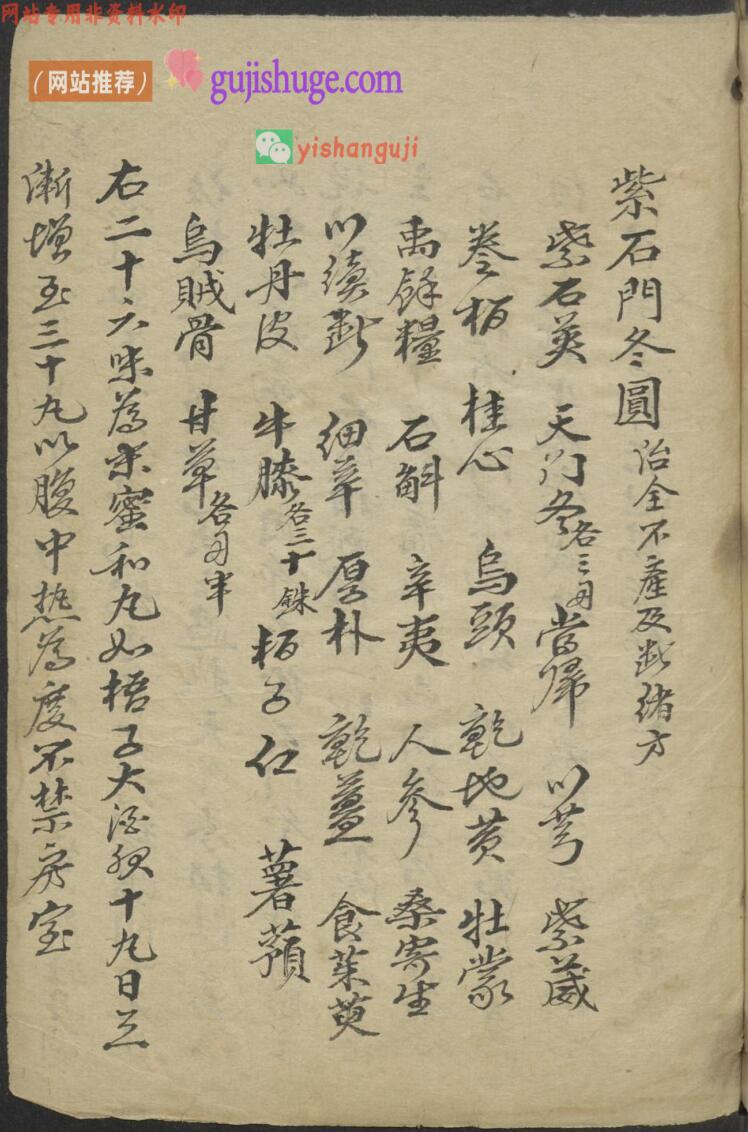 网站专用非资料水印
（网站推荐）
gujishuge.com
yishanguji
紫石門冬圓 治全不產及斷緒方
紫石英 天门冬各三两 當歸 川芎 紫葳
卷柏 桂心 烏頭 乾地黄 牡蒙
禹餘糧 石斛 辛夷 人參 桑寄生
川續斷 细辛 厚朴 乾薑 食茱萸
牡丹皮 牛膝各三十銖 柏子仁 薯蕷
烏賊骨 甘草各两半
右二十六味為末蜜和丸如梧子大酒服十丸日三
漸增至三十丸以腹中热為度不禁房室